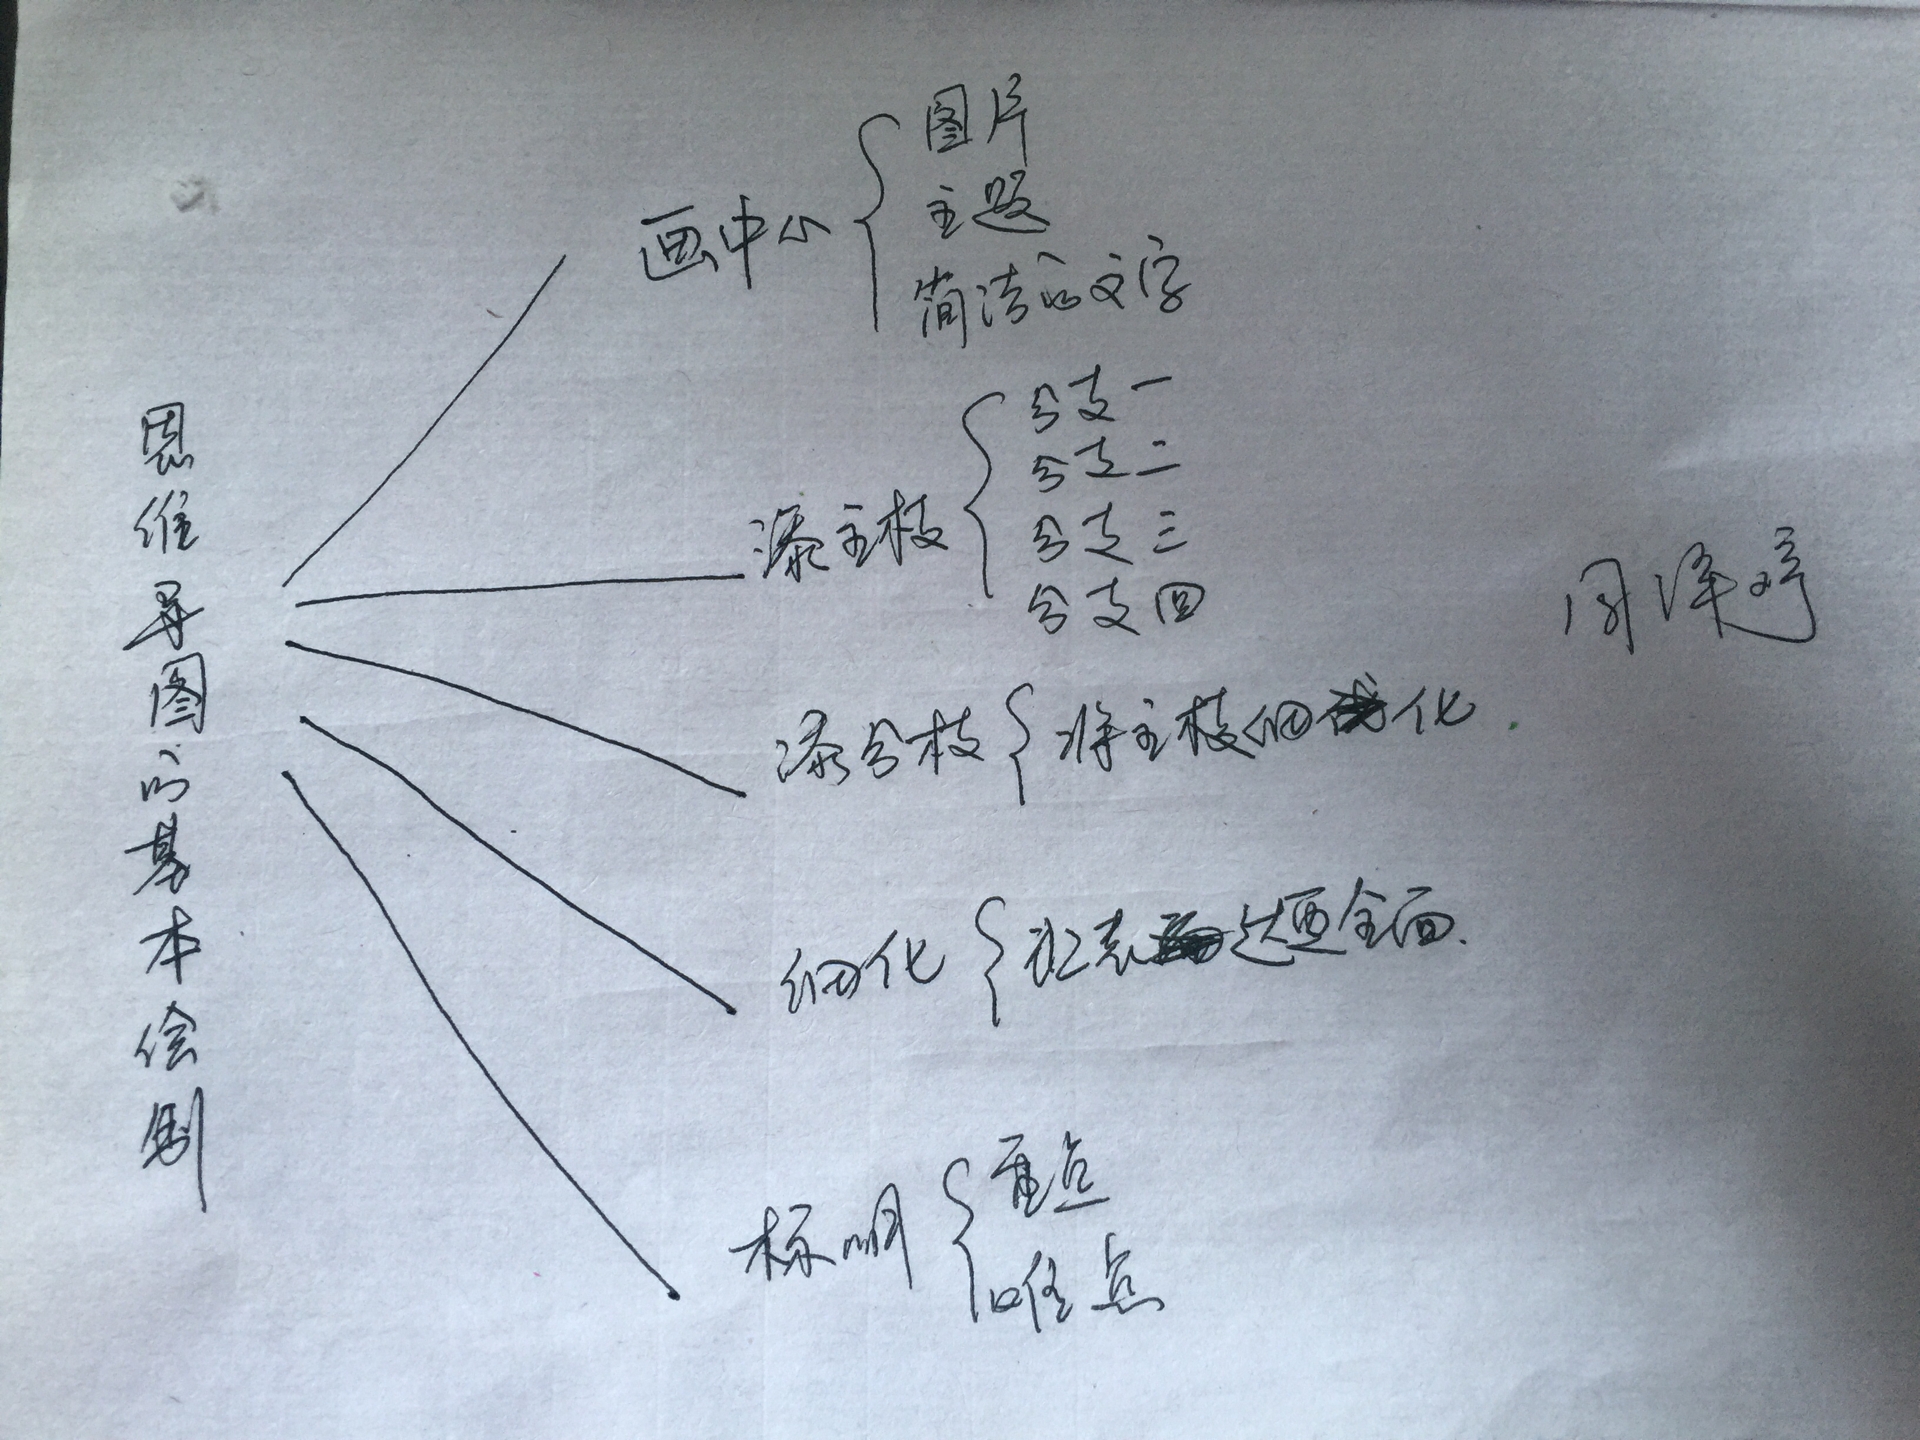 思维导图的基本绘制
画中心
图片
主题
简洁的文字
添主枝
分支一
分支二
分支三
分支四
添分枝
将主枝细化
细化
表达更全面.
标明
重点
难点
周泽婷